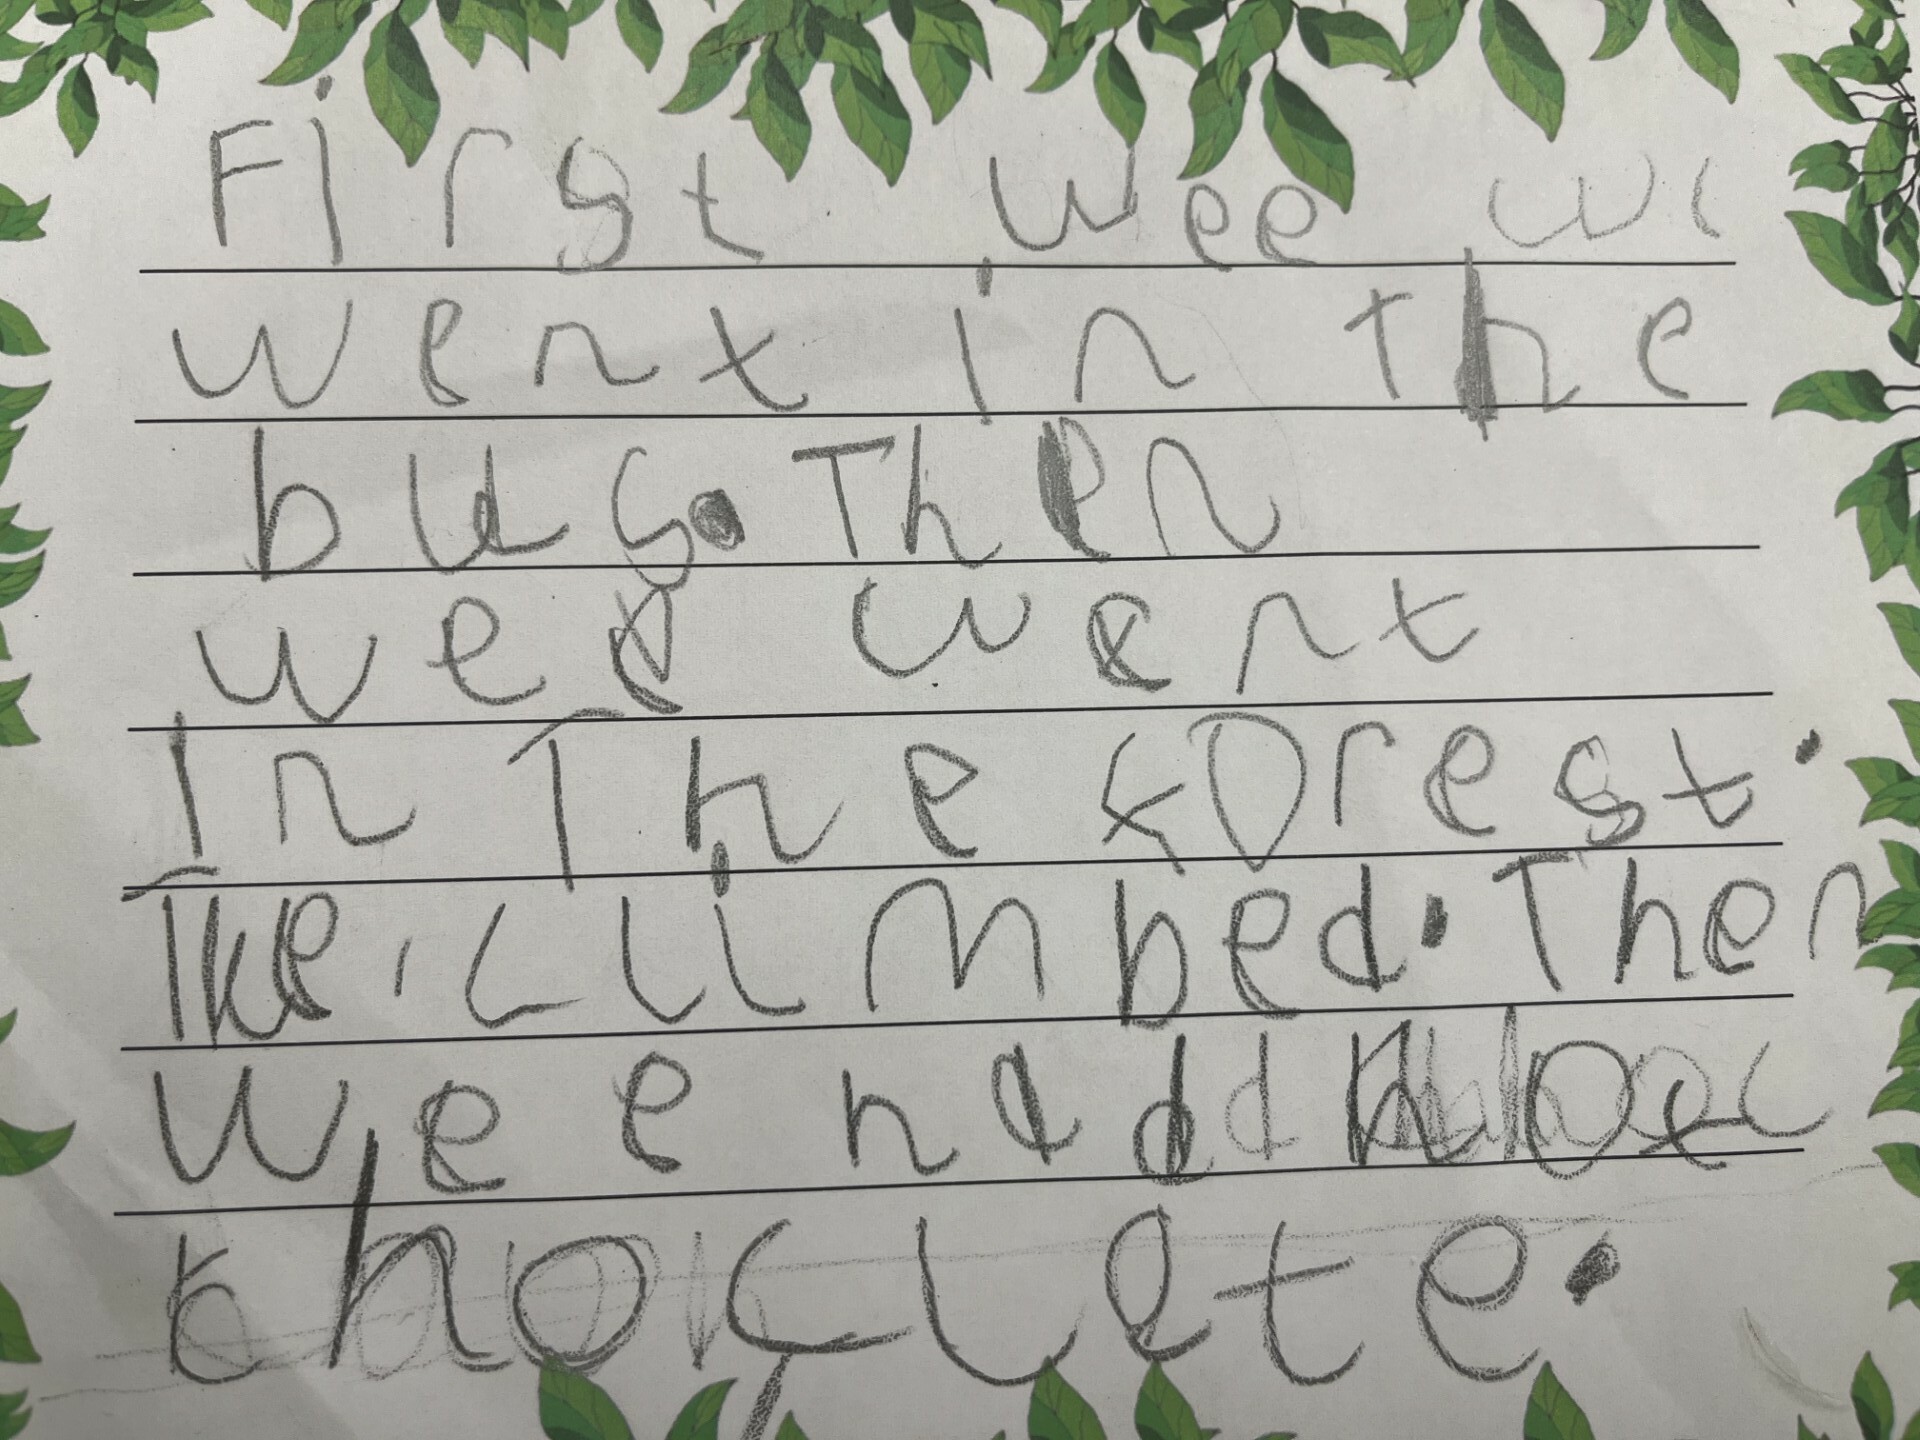 First wee we
went in the
bus. Then
wee went
in The forest.
The climbed. Then
wee hadd hot
choclete.